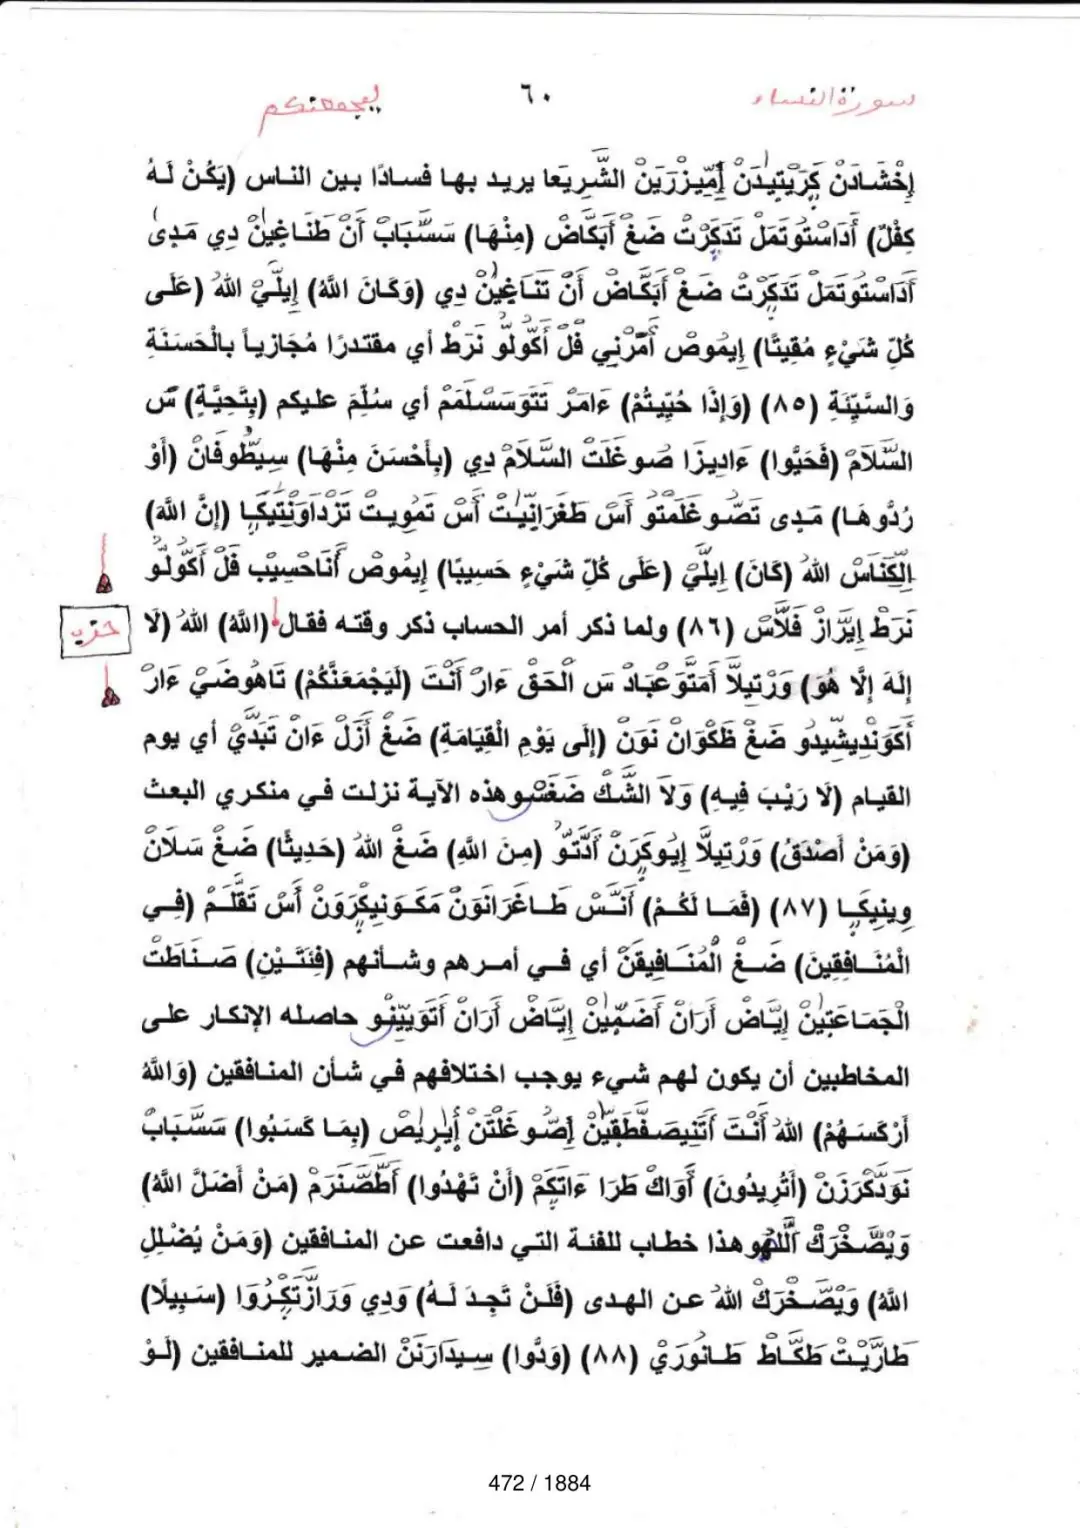 سورة النساء ٦٠ ليجمعنكم
إِخْشَادَنْ كَرَيْتِيدَنْ إِمِّيزْرَيَنْ الشَّرِيعَا يريد بها فسادًا بين الناس (يَكُنْ لَهُ
كِفْلٌ) أَدَاسْتُوتَمَلْ تَدَكَرْتْ ضَغْ أَبَكَّاضْ (مِنْهَا) سَسَّبَابْ أَنْ طَنَاغِينْ دِي مَدِى
أَدَاسْتُوتَمَلْ تَدَكَرْتْ ضَغْ أَبَكَّاضْ أَنْ تَنَاغِينْ دِي (وَكَانَ اللَّهُ) إِيلَيْ اللهُ (عَلَى
كُلِّ شَيْءٍ مُقِيتًا) إِيمُوصْ أَمَّرْنِي فَلْ أَكُّولُو نَرَطْ أي مقتدرًا مُجَازياً بالْحَسَنَةِ
وَالسَّيِّئَةِ (٨٥) (وَإِذَا حُيِّيتُمْ) ءَامَرْ تَتَوَسَسْلَمَمْ أي سُلِّمَ عليكم (بِتَحِيَّةٍ) سَ
السَّلَامْ (فَحَيُّوا) ءَادِيزَا صُوغَلَتْ السَّلَامْ دِي (بِأَحْسَنَ مِنْهَا) سِيَطُّوفَانْ (أَوْ
رُدُّوهَا) مَدِى تَصُّوغَلَمْتُو أَسْ طَغَرَانِّيتْ أَسْ تَمُوِيتْ تَزْدَاوَنْتَيكَا (إِنَّ اللَّهَ)
إِلِّكَنَاسْ اللهُ (كَانَ) إِيلَيْ (عَلَى كُلِّ شَيْءٍ حَسِيبًا) إِيمُوصْ أَنَاحْسِيبْ فَلْ أَكُّولُو
نَرَطْ إِيَرَازْ فَلَّاسْ (٨٦) ولما ذكر أمر الحساب ذكر وقته فقال (اللَّهُ) اللهُ (لَا
حزب
إِلَهَ إِلَّا هُوَ) وَرْتِيلَّا أَمَتَّوَعْبَادْ سَ الْحَقْ ءَارْ أَنْتَ (لَيَجْمَعَنَّكُمْ) تَاهُوضَيْ ءَارْ
أَكَوَنْدِيشِّيدُو ضَغْ ظَكْوَانْ نَونْ (إِلَى يَوْمِ الْقِيَامَةِ) ضَغْ أَزَلْ ءَانْ تَبَدَّيْ أي يوم
القيام (لَا رَيْبَ فِيهِ) وَلَا الشَّكْ ضَغَسْ وهذه الآية نزلت في منكري البعث
(وَمَنْ أَصْدَقُ) وَرْتِيلَّا إِيُوكَرَنْ أَدَّتَوْ (مِنَ اللَّهِ) ضَغْ اللهُ (حَدِيثًا) ضَغْ سَلَانْ
وِينِيكَا (٨٧) (فَمَا لَكُمْ) أَنَّسْ طَاغَرَانَوَنْ مَكَوَنِيكَرَوَنْ أَسْ تَقَلَّمْ (فِي
الْمُنَافِقِينَ) ضَغْ الْمُنَافِيقَنْ أي في أمرهم وشأنهم (فِئَتَيْنِ) صَنَاطَتْ
الْجَمَاعَتِينْ إِيَّاضْ أَرَانْ أَضَمِّينْ إِيَّاضْ أَرَانْ أَتَوَيِّينُو حاصله الإنكار على
المخاطبين أن يكون لهم شيء يوجب اختلافهم في شأن المنافقين (وَاللَّهُ
أَرْكَسَهُمْ) اللهُ أَنْتَ أَتَنِيصَفَطَّقِينْ إِصُّوغَلْتَنْ أَيرِيضْ (بِمَا كَسَبُوا) سَسَّبَابْ
نَوَدَّكَرَزَنْ (أَتُرِيدُونَ) أَوَاكْ طَرَا ءَاتَكَمْ (أَنْ تَهْدُوا) أَطَّصَنَرَمْ (مَنْ أَضَلَّ اللَّهُ)
وَيْصَّخْرَكْ أَللهُ وهذا خطاب للفئة التي دافعت عن المنافقين (وَمَنْ يُضْلِلِ
اللَّهُ) وَيْصَّخْرَكْ اللهُ عن الهدى (فَلَنْ تَجِدَ لَهُ) وَدِي وَرَازَّتَكِرُوَا (سَبِيلًا)
طَارَيْتْ طَكَّاطْ طَانُورَيْ (٨٨) (وَدُّوا) سِيدَارَنَنْ الضمير للمنافقين (لَوْ
472 / 1884